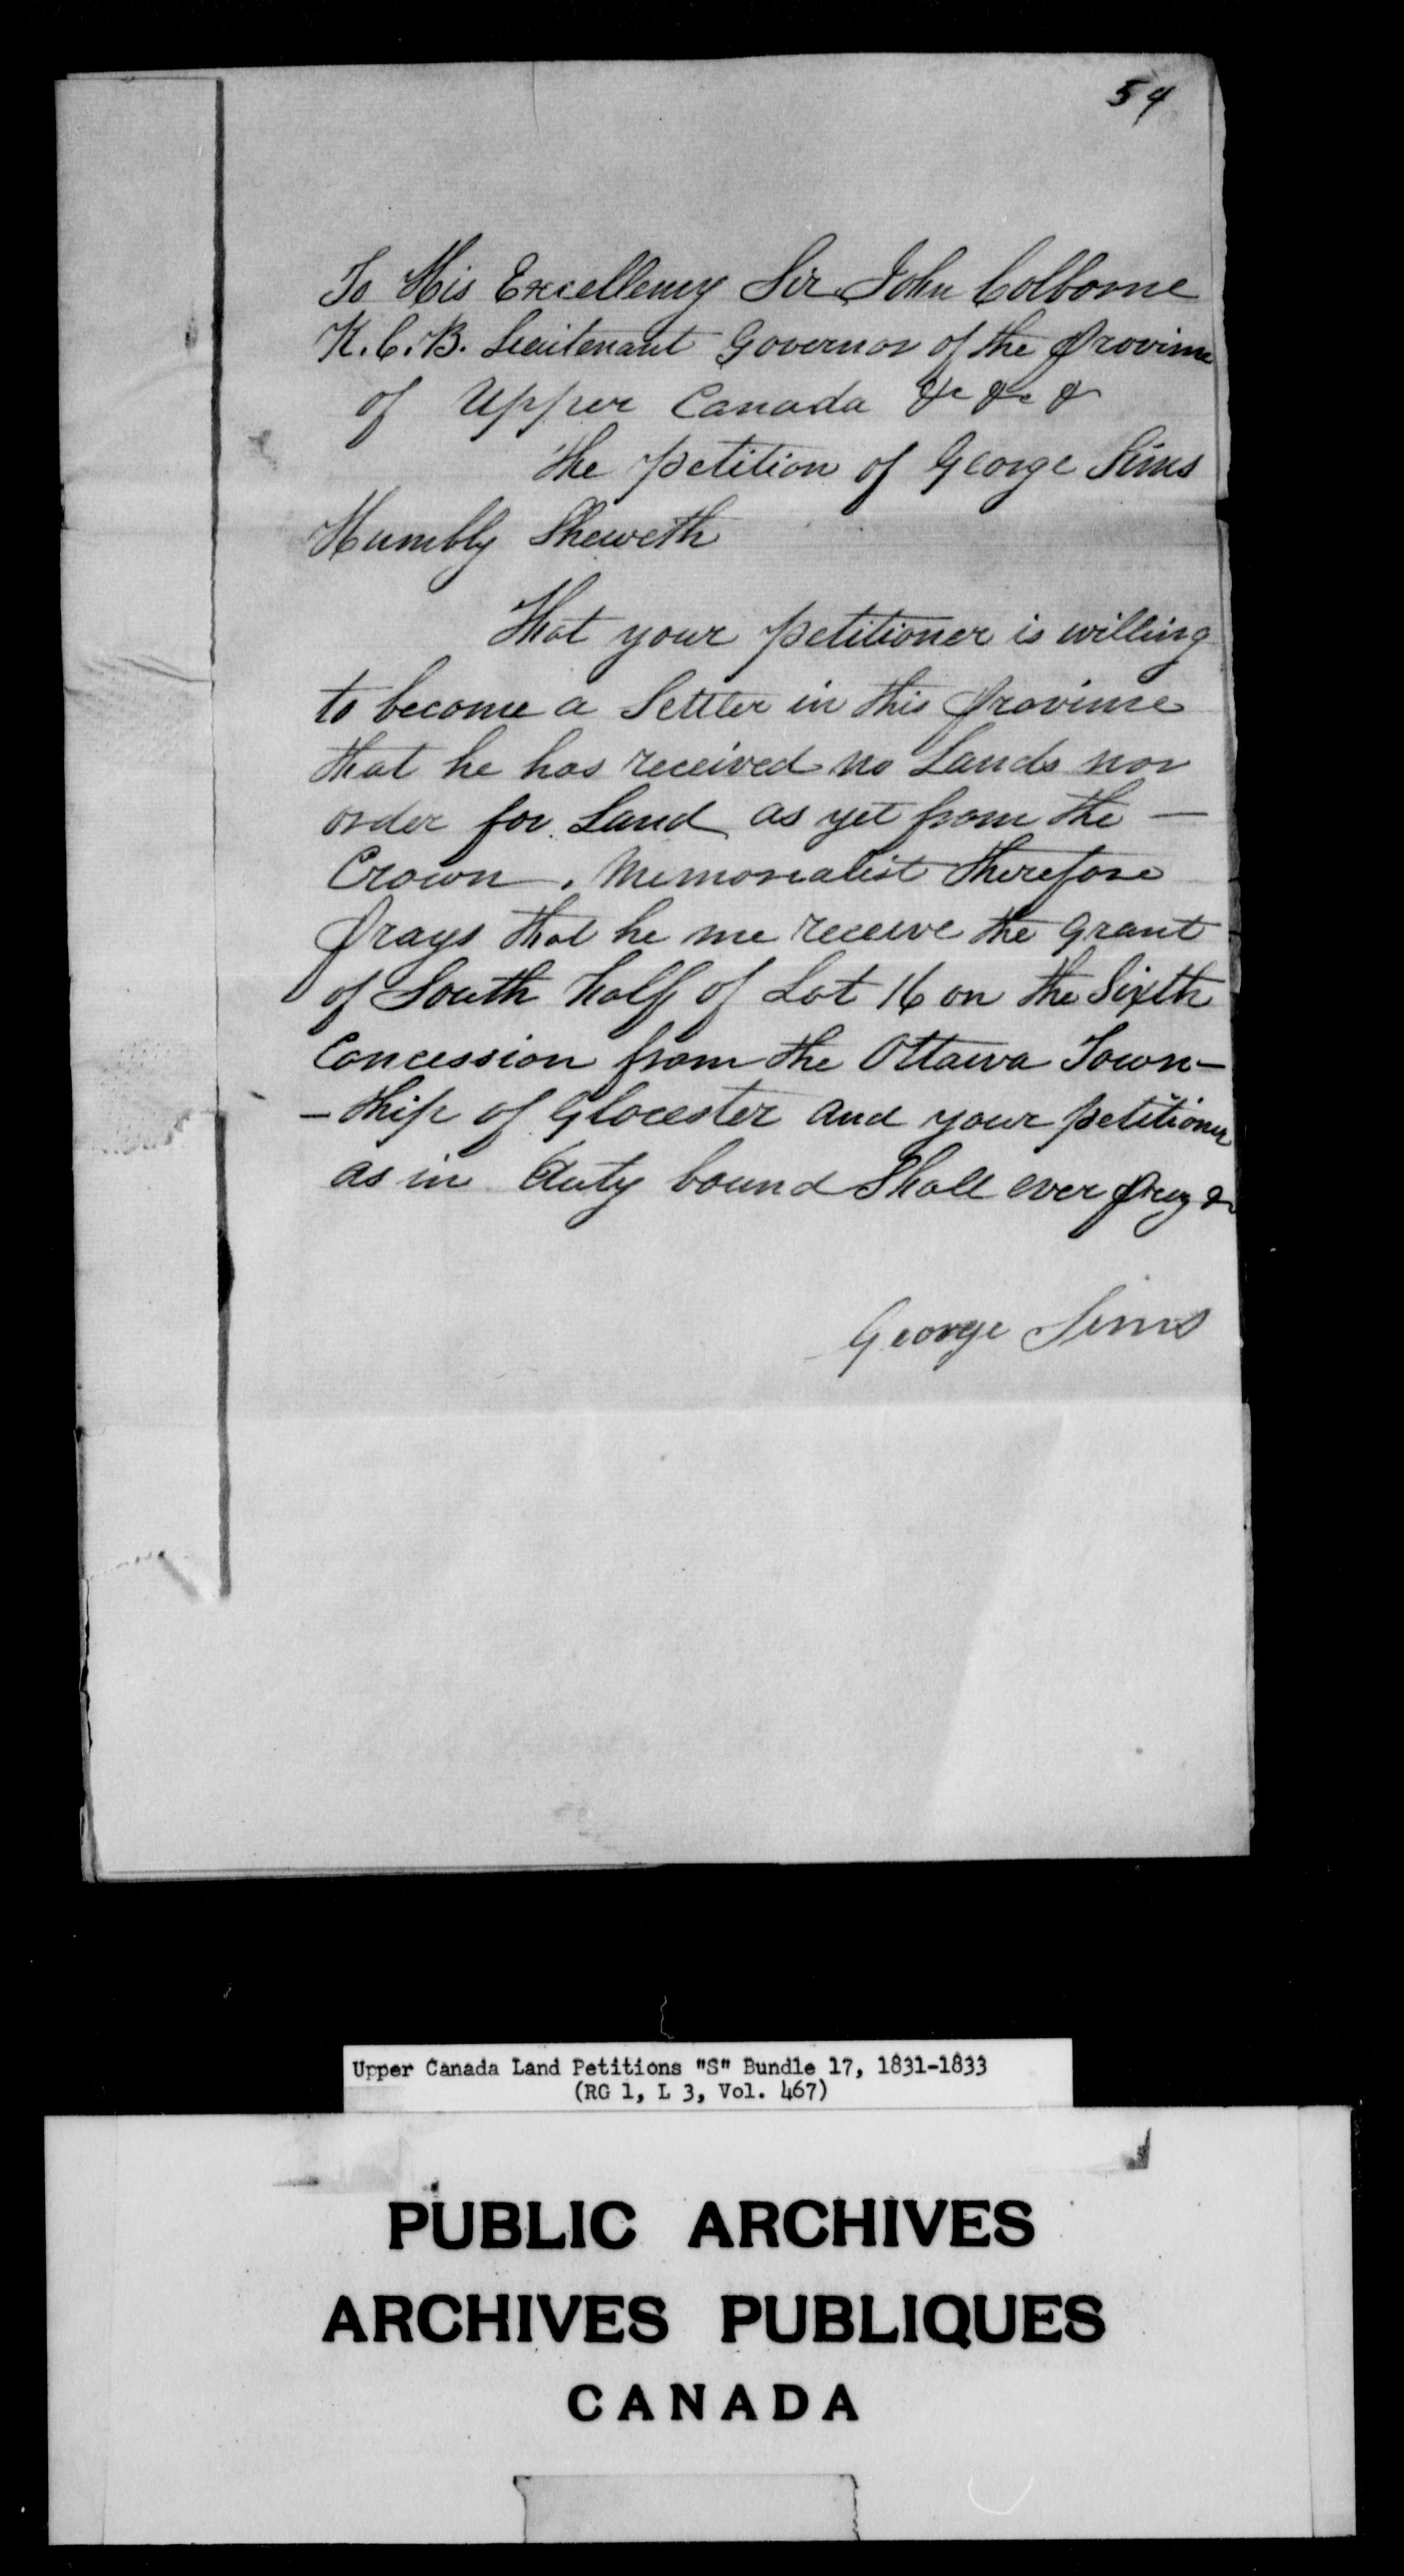 54
To His Excellency Sir John Colborne
K.C.B. Lieutenant Governor of the Province
of Upper Canada &c &c &
The petition of George Sims
Humbly Sheweth
That your petitioner is willing
to become a Settler in this Province
that he has received no Lands nor
order for Land as yet from the —
Crown. Memorialist therefore
Prays that he me receive the Grant
of South half of Lot 16 on the Sixth
Concession from the Ottawa Town-
-ship of Glocester and your petitioner
as in Duty bound Shall ever Pray &
George Sims
Upper Canada Land Petitions "S" Bundle 17, 1831-1833
(RG 1, L 3, Vol. 467)
PUBLIC ARCHIVES
ARCHIVES PUBLIQUES
CANADA